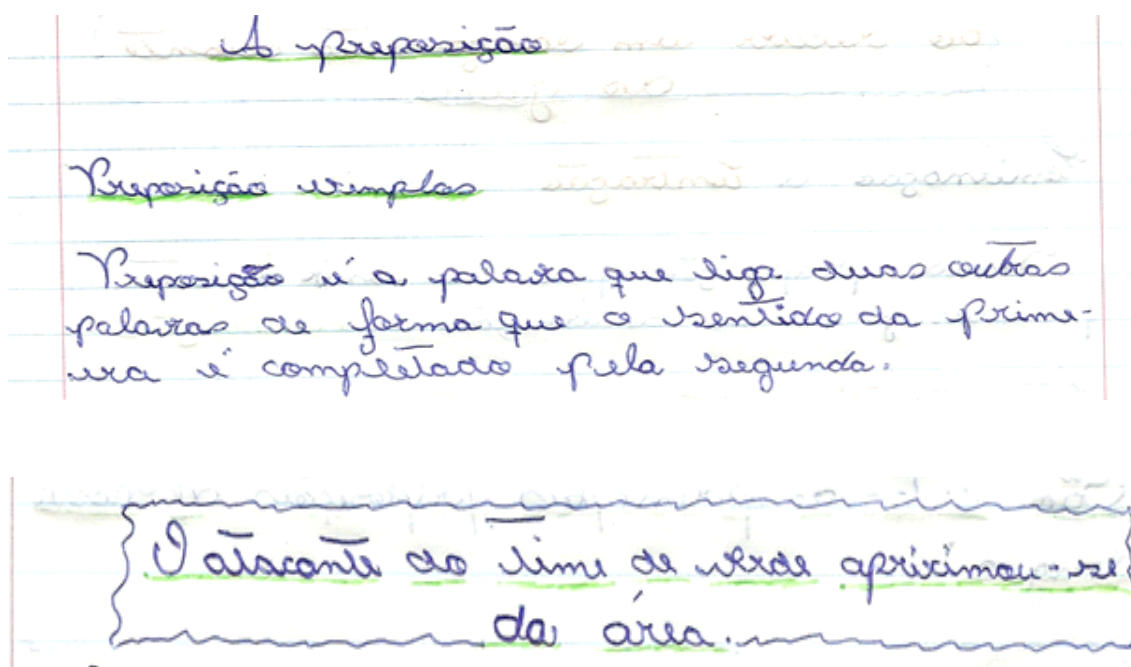 A preposição
Preposição simples
Preposição é a palavra que liga duas outras
palavras de forma que o sentido da prime-
ira é completado pela segunda.
O atacante do time de verde aproximou-se
da área.